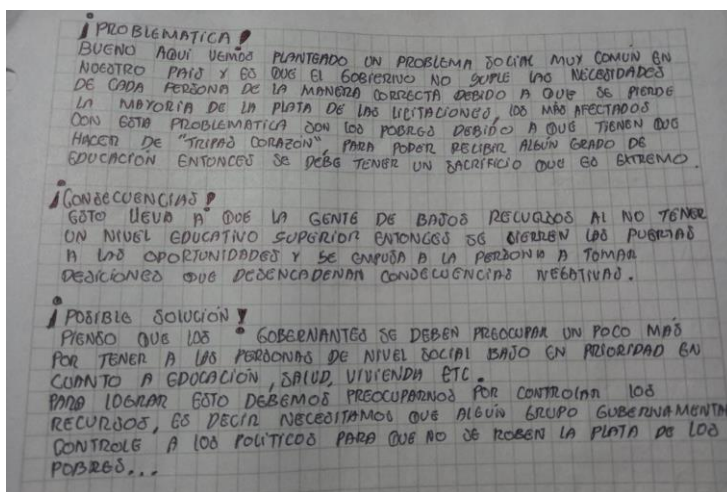 ¡PROBLEMATICA!
BUENO AQUÍ VEMOS PLANTEADO UN PROBLEMA SOCIAL MUY COMUN EN
NUESTRO PAIS Y ES QUE EL GOBIERNO NO SUPLE LAS NECESIDADES
DE CADA PERSONA DE LA MANERA CORRECTA DEBIDO A QUE SE PIERDE
LA MAYORIA DE LA PLATA DE LAS LICITACIONES, LOS MÁS AFECTADOS
CON ESTA PROBLEMATICA SON LOS POBRES DEBIDO A QUE TIENEN QUE
HACER DE "TRIPAS CORAZÓN", PARA PODER RECIBIR ALGUN GRADO DE
EDUCACIÓN ENTONCES SE DEBE TENER UN SACRIFICIO QUE ES EXTREMO.
¡CONSECUENCIAS!
ESTO LLEVA A QUE LA GENTE DE BAJOS RECURSOS AL NO TENER
UN NIVEL EDUCATIVO SUPERIOR ENTONCES SE CIERREN LAS PUERTAS
A LAS OPORTUNIDADES Y SE EMPUJA A LA PERSONA A TOMAR
DESICIONES QUE DESENCADENAN CONSECUENCIAS NEGATIVAS.
¡POSIBLE SOLUCIÓN!
PIENSO QUE LOS GOBERNANTES SE DEBEN PREOCUPAR UN POCO MAS
POR TENER A LAS PERSONAS DE NIVEL SOCIAL BAJO EN PRIORIDAD EN
CUANTO A EDUCACIÓN, SALUD, VIVIENDA ETC.
PARA LOGRAR ESTO DEBEMOS PREOCUPARNOS POR CONTROLAR LOS
RECURSOS, ES DECIR NECESITAMOS QUE ALGUN GRUPO GUBERNAMENTA
CONTROLE A LOS POLÍTICOS PARA QUE NO SE ROBEN LA PLATA DE LOS
POBRES...